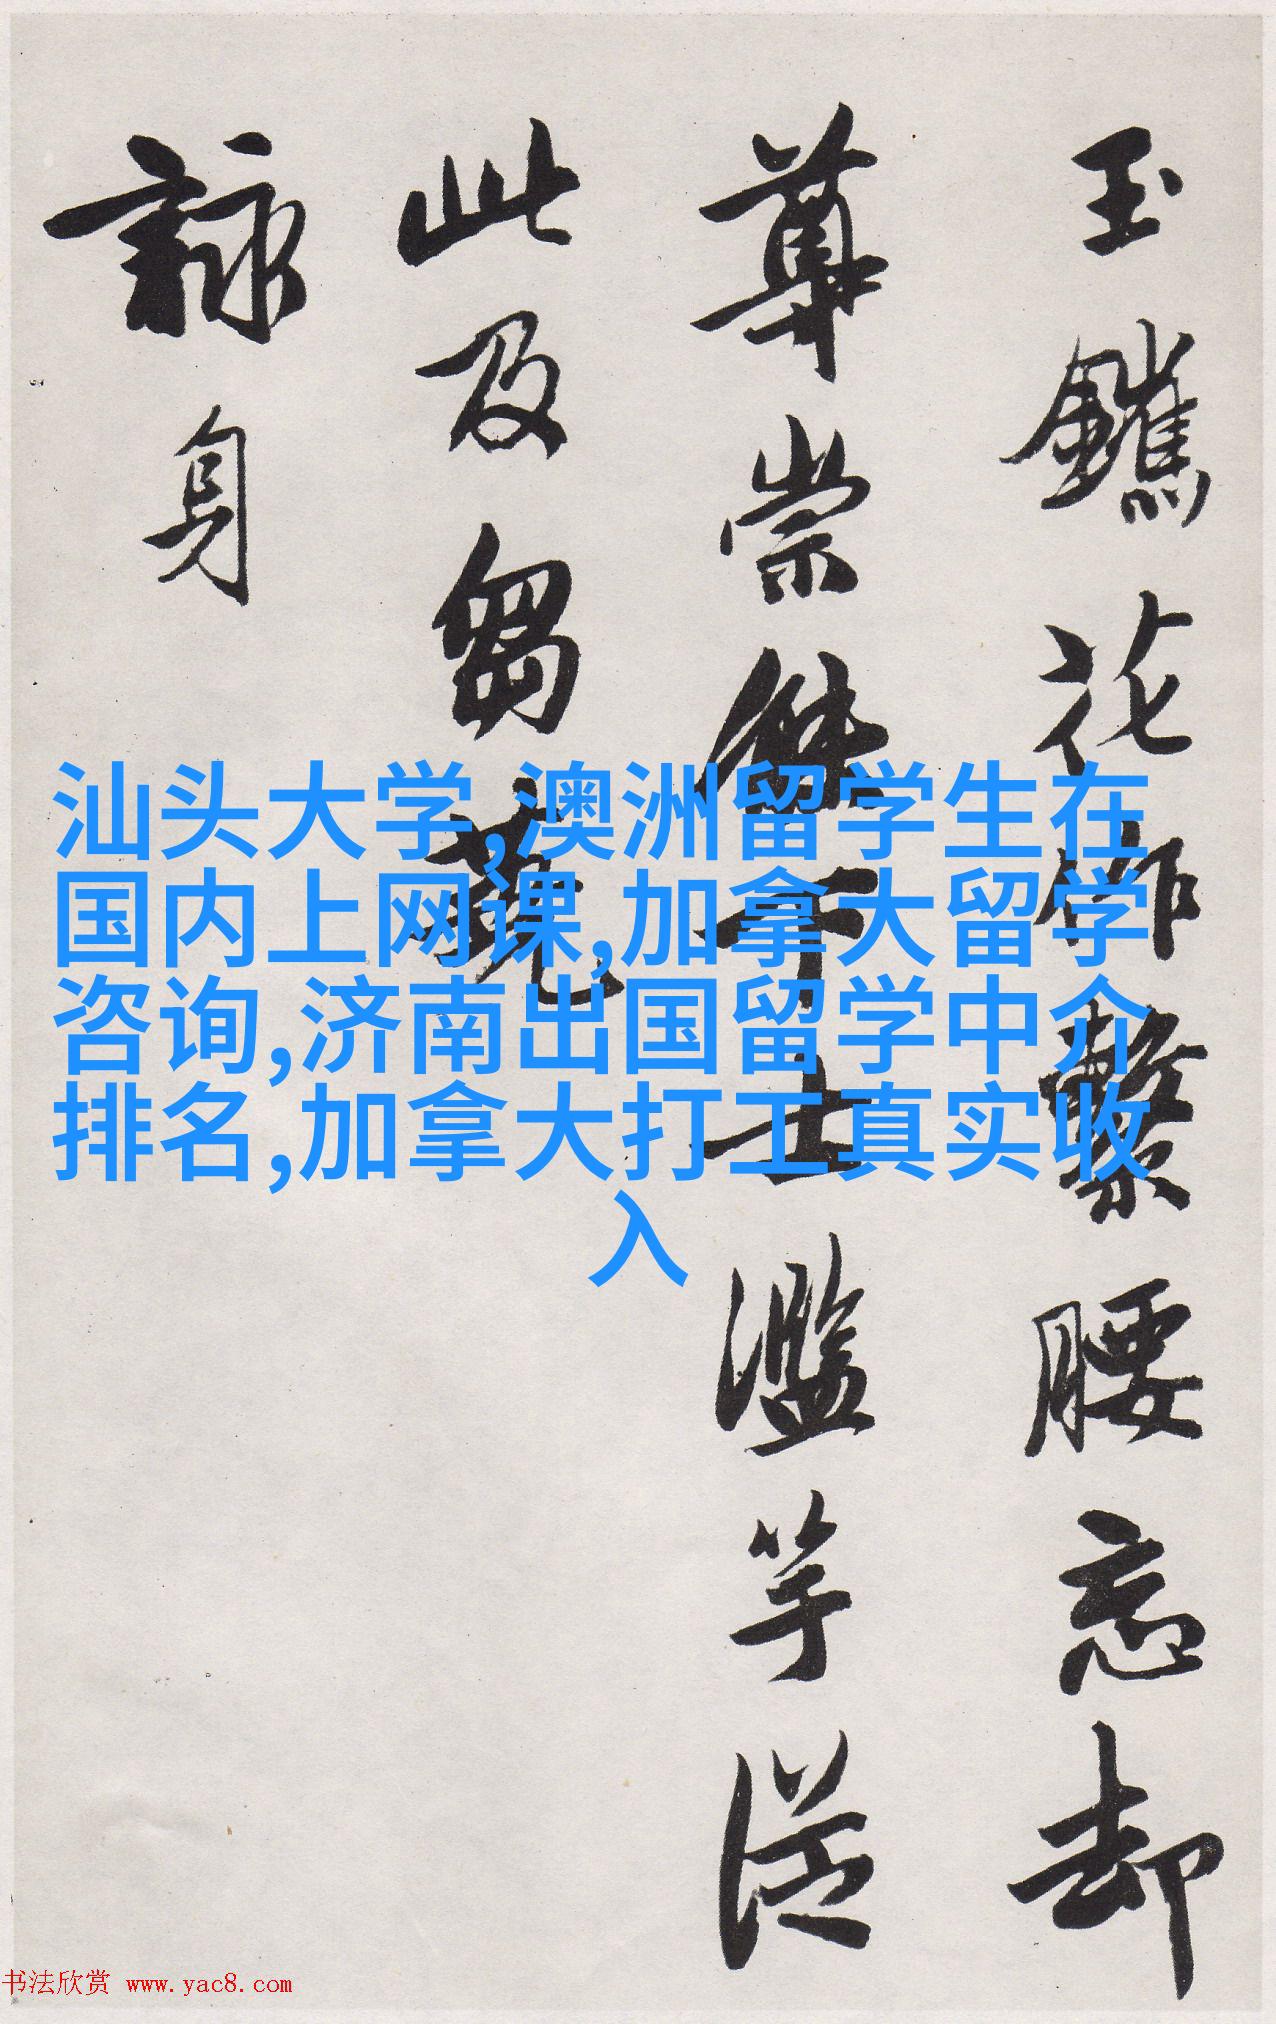 玉鑱花作繫腰忘却
尊崇傑下士濫竽從
此及芻蕘
詠身
汕头大学,澳洲留学生在
国内上网课,加拿大留学
咨询,济南出国留学中介
排名,加拿大打工真实收
入
书法欣赏 www.yac8.com